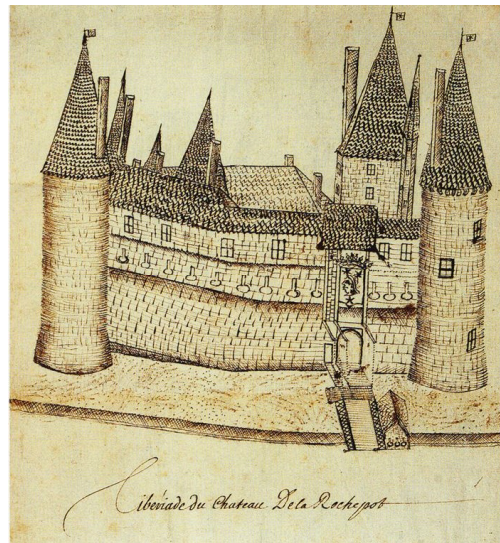 Tibériade du Chateau De la Rochepot